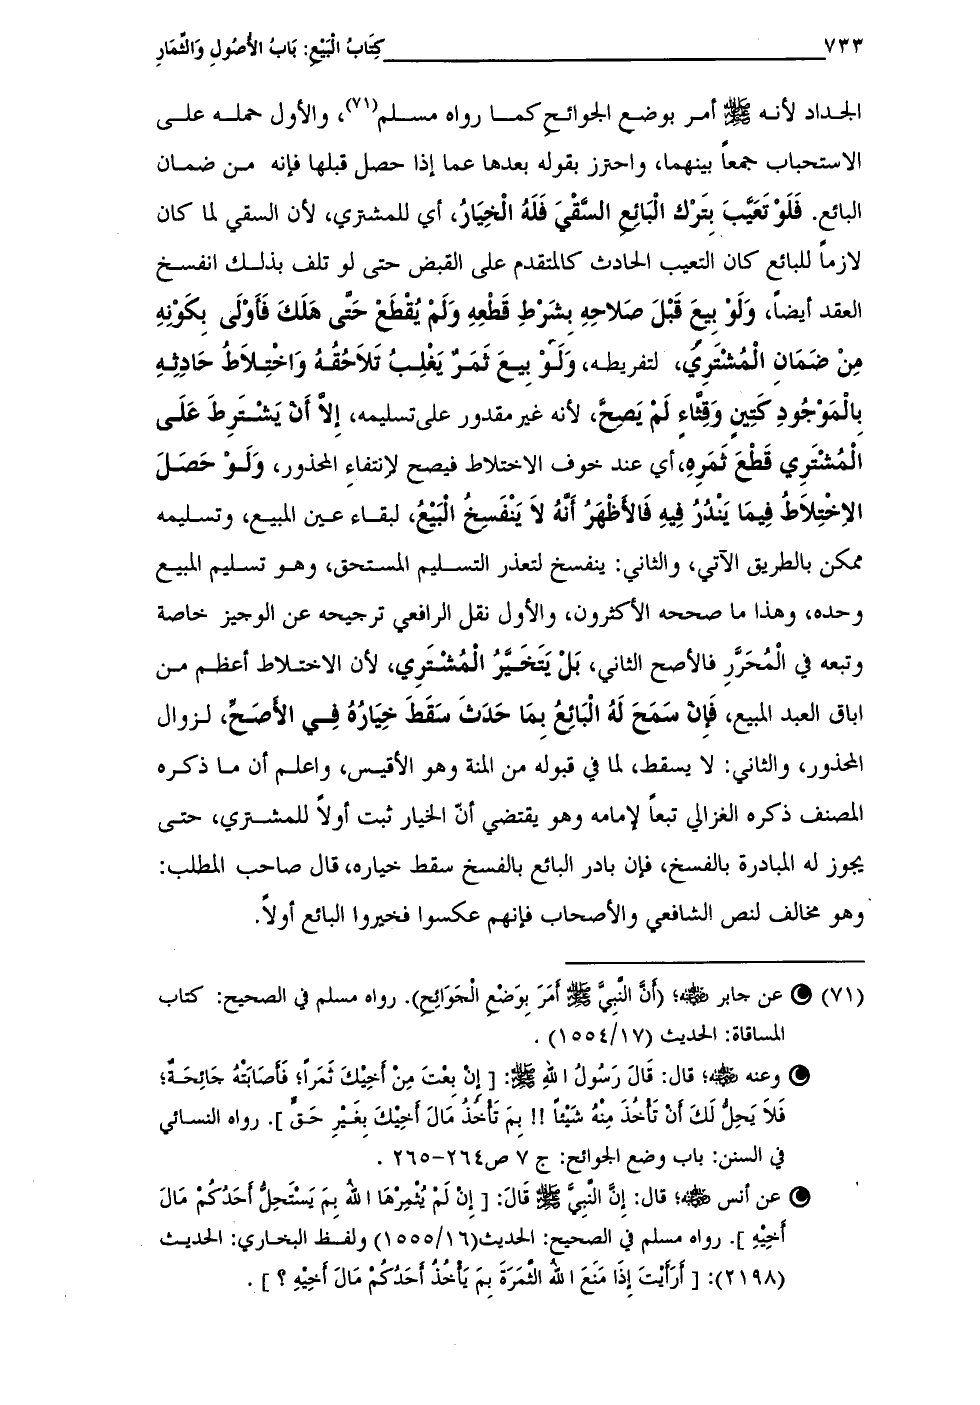 ٧٣٣ كِتَابُ الْبَيْعِ: بَابُ الأُصُولِ وَالثِّمَارِ
الجداد لأنه ﷺ أمر بوضع الجوائح كما رواه مسلم(٧١)، والأول حمله على
الاستحباب جمعاً بينهما، واحترز بقوله بعدها عما إذا حصل قبلها فإنه من ضمان
البائع. فَلَوْ تَعَيَّبَ بِتَرْكِ الْبَائِعِ السَّقْيَ فَلَهُ الْخِيَارُ، أي للمشتري، لأن السقي لما كان
لازماً للبائع كان التعيب الحادث كالمتقدم على القبض حتى لو تلف بذلك انفسخ
العقد أيضاً، وَلَوْ بِيعَ قَبْلَ صَلاَحِهِ بِشَرْطِ قَطْعِهِ وَلَمْ يُقْطَعْ حَتَّى هَلَكَ فَأَوْلَى بِكَوْنِهِ
مِنْ ضَمَانِ الْمُشْتَرِي، لتفريطه، وَلَوْ بِيعَ ثَمَرٌ يَغْلِبُ تَلاَحُقُهُ وَاخْتِلاَطُ حَادِثِهِ
بِالْمَوْجُودِ كَتِينٍ وَقِثَّاءٍ لَمْ يَصِحَّ، لأنه غير مقدور على تسليمه، إِلاَّ أَنْ يَشْتَرِطَ عَلَى
الْمُشْتَرِي قَطْعَ ثَمَرِهِ، أي عند خوف الاختلاط فيصح لإنتفاءِ المحذور، وَلَوْ حَصَلَ
الاِخْتِلاَطُ فِيمَا يَنْدُرُ فِيهِ فَالأَظْهَرُ أَنَّهُ لاَ يَنْفَسِخُ الْبَيْعُ، لبقاء عين المبيع، وتسليمه
ممكن بالطريق الآتي، والثاني: ينفسخ لتعذر التسليم المستحق، وهو تسليم المبيع
وحده، وهذا ما صححه الأكثرون، والأول نقل الرافعي ترجيحه عن الوجيز خاصة
وتبعه في الْمُحَرَّرِ فالأصح الثاني، بَلْ يَتَخَيَّرُ الْمُشْتَرِي، لأن الاختلاط أعظم من
اباق العبد المبيع، فَإِنْ سَمَحَ لَهُ الْبَائِعُ بِمَا حَدَثَ سَقَطَ خِيَارُهُ فِي الأَصَحِّ، لزوال
المحذور، والثاني: لا يسقط، لما في قبوله من المنة وهو الأقيس، واعلم أن ما ذكره
المصنف ذكره الغزالي تبعاً لإمامه وهو يقتضي أنّ الخيار ثبت أولاً للمشتري، حتى
يجوز له المبادرة بالفسخ، فإن بادر البائع بالفسخ سقط خياره، قال صاحب المطلب:
وهو مخالف لنص الشافعي والأصحاب فإنهم عكسوا فخيروا البائع أولاً.
(٧١) عن جابر ﷺ؛ (أَنَّ النَّبِيَّ ﷺ أَمَرَ بِوَضْعِ الْجَوَائِحِ). رواه مسلم في الصحيح: كتاب
المساقاة: الحديث (١٥٥٤/١٧) .
وعنه؛ قال: قَالَ رَسُولُ اللهِ ﷺ: [ إِنْ بِعْتَ مِنْ أَخِيْكَ ثَمَراً؛ فَأَصَابَتْهُ جَائِحَةٌ؛
فَلاَ يَحِلُّ لَكَ أَنْ تَأْخُذَ مِنْهُ شَيْئاً !! بِمَ تَأْخُذُ مَالَ أَخِيْكَ بِغَيْرِ حَقٍّ ]. رواه النسائي
في السنن: باب وضع الجوائح: ج ٧ ص٢٦٤-٢٦٥ .
عن أنس؛ قال: إِنَّ النَّبِيَّ ﷺ قَالَ: [ إِنْ لَمْ يُثْمِرْهَا اللهُ بِمَ يَسْتَحِلُّ أَحَدُكُمْ مَالَ
أَخِيْهِ ]. رواه مسلم في الصحيح: الحديث(١٥٥٥/١٦) ولفظ البخاري: الحديث
(٢١٩٨): [ أَرَأَيْتَ إِذَا مَنَعَ اللهُ الثَّمَرَةَ بِمَ يَأْخُذُ أَحَدُكُمْ مَالَ أَخِيْهِ ؟ ] .